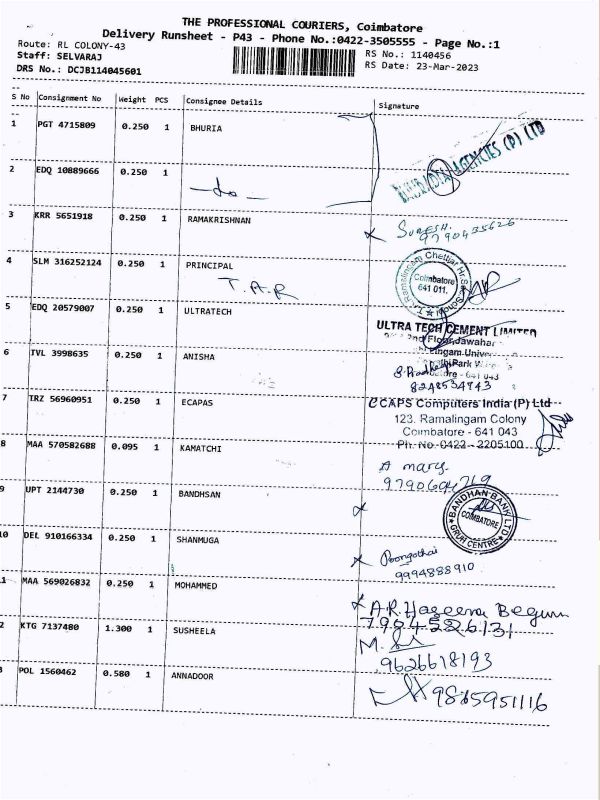 THE PROFESSIONAL COURIERS, Coimbatore
Delivery Runsheet - P43 - Phone No.:0422-3505555 - Page No.:1
Route: RL COLONY-43
RS No.: 1140456
Staff: SELVARAJ
RS Date: 23-Mar-2023
DRS No.: DCJB114045601
S No Consignment No Weight PCS Consignee Details Signature
1 PGT 4715809 0.250 1 BHURIA
AGENCIES (P) LTD
2 EDQ 10889666 0.250 1 —do—
3 KRR 5651918 0.250 1 RAMAKRISHNAN SURESH.
9790435626
4 SLM 316252124 0.250 1 PRINCIPAL
T.A.R
Ramalingam Chettiar Hr. Sec. School
Coimbatore
641 011.
5 EDQ 20579007 0.250 1 ULTRATECH
ULTRA TECH CEMENT LIMITED
2nd Floor, Jawahar
6 IVL 3998635 0.250 1 ANISHA
641 043
8248534743
7 TRZ 56960951 0.250 1 ECAPAS
CCAPS Computers India (P) Ltd
123, Ramalingam Colony
Coimbatore - 641 043
Ph. No 0422 - 2205100
8 MAA 570582688 0.095 1 KAMATCHI
A mary.
9790694769
9 UPT 2144730 0.250 1 BANDHSAN
BANDHAN BANK LTD
COIMBATORE
GRUH CENTRE
10 DEL 910166334 0.250 1 SHANMUGA
Poongothai
9994888910
1 MAA 569026832 0.250 1 MOHAMMED
A.R. Haseena Begum
7904526131
2 KTG 7137480 1.300 1 SUSHEELA
9626618193
3 POL 1560462 0.580 1 ANNADOOR
9865951116